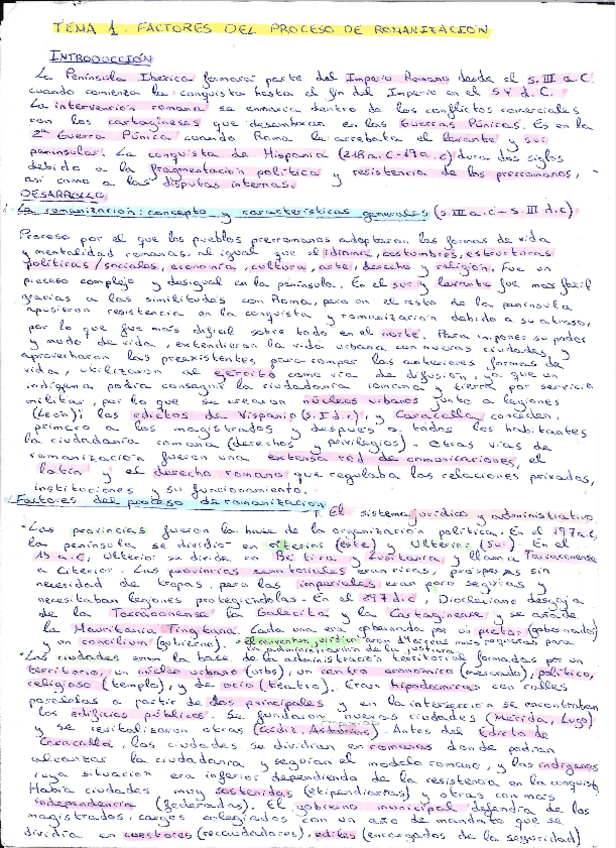 TEMA 1. FACTORES DEL PROCESO DE ROMANIZACIÓN
INTRODUCCIÓN
La Península Ibérica formará parte del Imperio Romano desde el s. III a.C.
cuando comienza la conquista hasta el fin del Imperio en el S V d. C.
La intervención romana se enmarca dentro de los conflictos comerciales
con los cartagineses que desembocan en las Guerras Púnicas. Es en la
2ª Guerra Púnica cuando Roma la arrebata el levante y sur
peninsular. La conquista de Hispania (218 a.C-19 a.c) dura dos siglos
debido a la fragmentación política y resistencia de los prerromanos,
así como a las disputas internas.
DESARROLLO
La romanización: concepto y características generales (s. III a.c - s. III d.c)
Proceso por el que los pueblos prerromanos adoptaron las formas de vida
y mentalidad romanas, al igual que el idioma, costumbres, estructuras
políticas/sociales, economía, cultura, arte, derecho y religión. Fue un
proceso complejo y desigual en la península. En el sur y levante fue más fácil
gracias a las similitudes con Roma, pero en el resto de la península
opusieron resistencia en la conquista y romanización debido a su atraso,
por lo que fue más difícil sobre todo en el norte. Para imponer su poder
y modo de vida, extendieron la vida urbana con nuevas ciudades y
aprovecharon las preexistentes para romper las anteriores formas de
vida, utilizaron al ejército como vía de difusión, ya que un
indígena podía conseguir la ciudadanía romana y tierra por servicio
militar, por lo que se crearon núcleos urbanos junto a legiones
(León); los edictos de Vespasio (s. I d.c), y Caracalla conceden,
primero a los magistrados y después a todos los habitantes
la ciudadanía romana (derechos y privilegios). Otras vías de
romanización fueron una extensa red de comunicaciones, el
latín y el derecho romano que regulaba las relaciones privadas,
instituciones y su funcionamiento.
Factores del proceso de romanización
1. El sistema jurídico y administrativo
• Las provincias fueron la base de la organización política. En el 197 a.C,
la península se dividía en citerior (este) y Ulterior (sur). En el
13 a.C, ulterior se divide en Bética y Lusitania y llaman Tarraconense
a Citerior. Las provincias senatoriales eran ricas, prósperas sin
necesidad de tropas, pero las imperiales eran poco seguras y
necesitaban legiones protegiéndolas. En el 297 d.c, Diocleciano desgaja
de la Tarraconense la Galecita y la Cartaginense y se añade
la Mauritania Tingitana. Cada una era gobernada por un pretor (gobernador)
y un concilium (gobierno). • El conventus jurídici eran áreas más pequeñas para
la administración de la justicia.
• Las ciudades eran la base de la administración territorial formadas por un
territorio, un núcleo urbano (urbs), un centro económico (mercado), político,
religioso (templo), y de ocio (teatro). Eran hipodámicas con calles
paralelas a partir de dos principales y en la intersección se encontraban
los edificios públicos. Se fundaron nuevas ciudades (Mérida, Lugo)
y se revitalizaron otras (Cádiz, Astorias). Antes del Edicto de
Caracalla, las ciudades se dividían en romanas donde podían
alcanzar la ciudadanía y seguían el modelo romano, y las indígenas
cuya situación era inferior dependiendo de la resistencia en la conquista.
Había ciudades muy sostenidas (estipendiarias) y otras con más
independencia (federadas). El gobierno municipal dependía de los
magistrados, cargos colegiados con un año de mandato que se
dividía en cuestores (recaudadores), ediles (encargados de la seguridad)